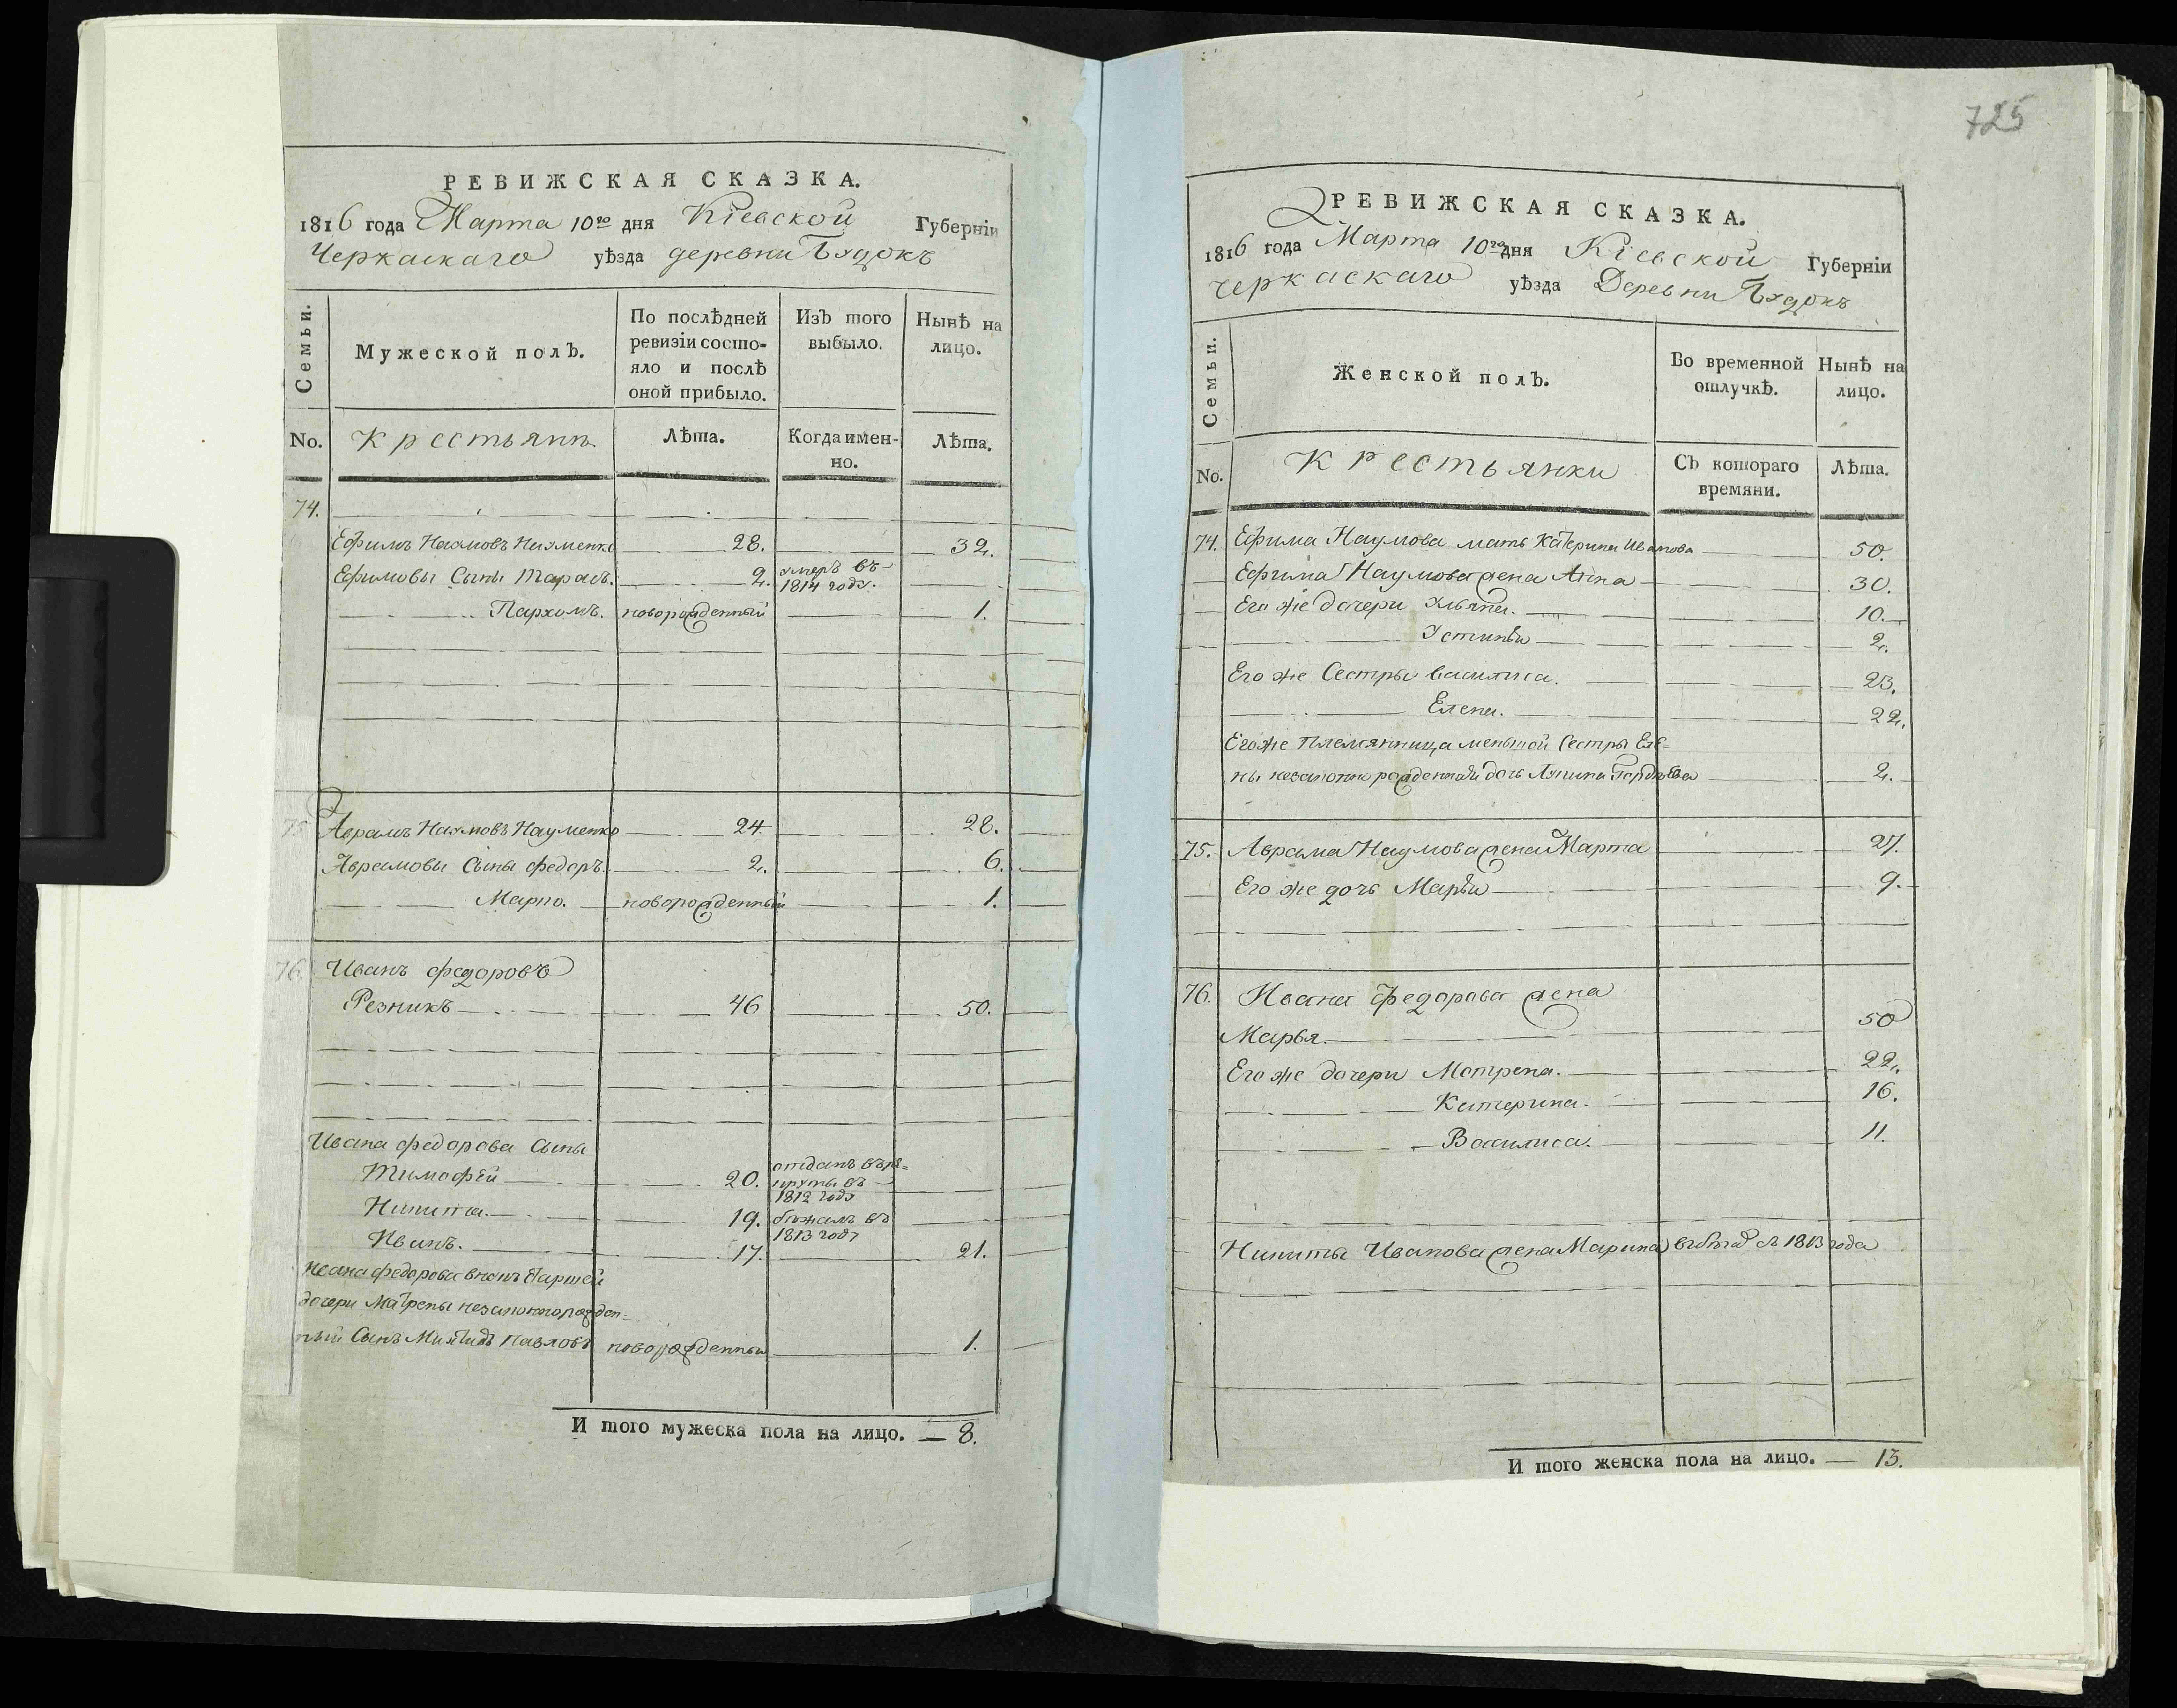 РЕВИЖСКАЯ СКАЗКА.
1816 года Марта 10го дня Кіевской Губерніи
Черкаскаго уѣзда деревни Будокъ
Семьи.
Мужеской полЪ.
По послѣдней ревизіи состо-
яло и послѣ
оной прибыло.
ИзЪ того
выбыло.
Нынѣ на
лицо.
No.
Крестьянъ
Лѣта.
Когда имен-
но.
Лѣта.
74.
Ефимъ Наумовъ Науменко 28. 32.
Ефимовы Сыны Тарасъ. 2. умеръ въ
1814 году.
Пархомъ. новорожденный 1.
75 Аврамъ Наумовъ Науменко 24. 28.
Аврамовы Сыны федоръ. 2. 6.
Марко. новорожденный 1.
76. Иванъ федоровъ
Резникъ 46 50.
Ивана федорова Сыны
Тимофей 20. отданъ въ ре-
круты въ
1812 году
Никита. 19. бѣжалъ въ
1813 году
Иванъ. 17. 21.
Ивана федорова внукъ старшей
дочери Матрены незаконнорожден-
ный Сынъ Павловъ новорожденный 1.
И того мужеска пола на лицо. — 8.
725
РЕВИЖСКАЯ СКАЗКА.
1816 года Марта 10го дня Кіевской Губерніи
черкаскаго уѣзда Деревни Будокъ
Семьи.
Женской полЪ.
Во временной
отлучкѣ.
Нынѣ на
лицо.
No.
Крестьянки
СЪ котораго
времяни.
Лѣта.
74. Ефима Наумова мать Катерина Иванова 50.
Ефима Наумова жена Анна 30.
Его же дочери Ульяна. 10.
Устинья 2.
Его же Сестры василиса. 23.
Елена. 22.
Его же Племянница меньшой Сестры Еле-
ны незаконно рожденная дочь 2.
75. Аврама Наумова жена Марта 27.
Его же дочь Марья 9.
76. Ивана Федорова жена
Марья. 50
Его же дочери Мотрена. 22.
Катерина. 16.
Василиса. 11.
Никиты Иванова жена Марина въ бѣгах съ 1813 года
И того женска пола на лицо. — 13.